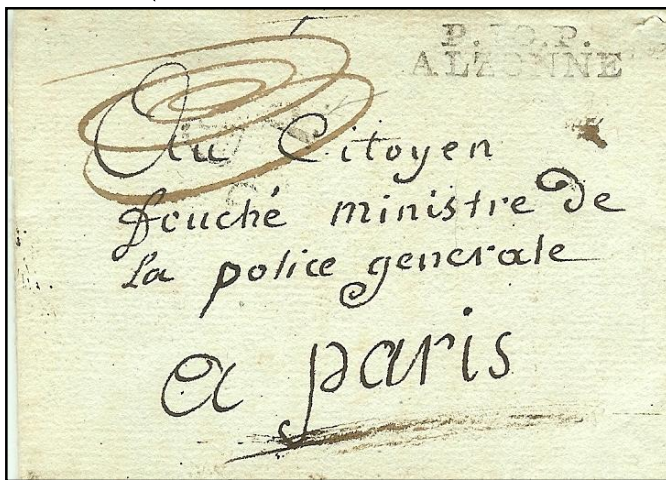 P.10.P.
ALZONNE
Au Citoyen
fouché ministre de
la police generale
a paris